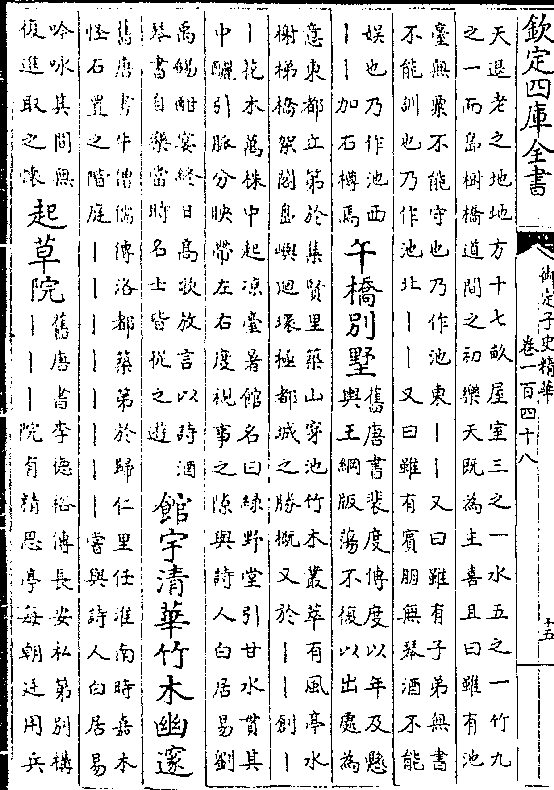 欽定四庫全書
御定子史精華
卷一百四十八
十五
天退老之地地方十七畝屋室三之一水五之一竹九
之一而島樹橋道間之初樂天既為主喜且曰雖有池
臺無粟不能守也乃作池東丨丨又曰雖有子弟無書
不能訓也乃作池北丨丨又曰雖有賓朋無琴酒不能
娛也乃作池西
丨丨加石樽焉
午橋別墅
舊唐書裴度傳度以年及懸
輿王綱版蕩不復以出處為
意東都立第於集賢里築山穿池竹木叢萃有風亭水
榭梯橋架閣島嶼迴環極都城之勝概又於丨丨創丨
丨花木萬株中起凉臺暑館名曰緑野堂引甘水貫其
中釃引脈分映帶左右度視事之隙與詩人白居易劉
禹錫酣宴終日高歌放言以詩酒
琴書自樂當時名士皆從之遊
館宇清華竹木幽邃
舊唐書牛僧儒傳洛都築第於歸仁里任淮南時嘉木
怪石置之階庭丨丨丨丨丨丨丨丨嘗與詩人白居易
吟咏其間無
復進取之懷
起草院
舊唐書李德裕傳長安私第別構
丨丨丨院有精思亭每朝廷用兵